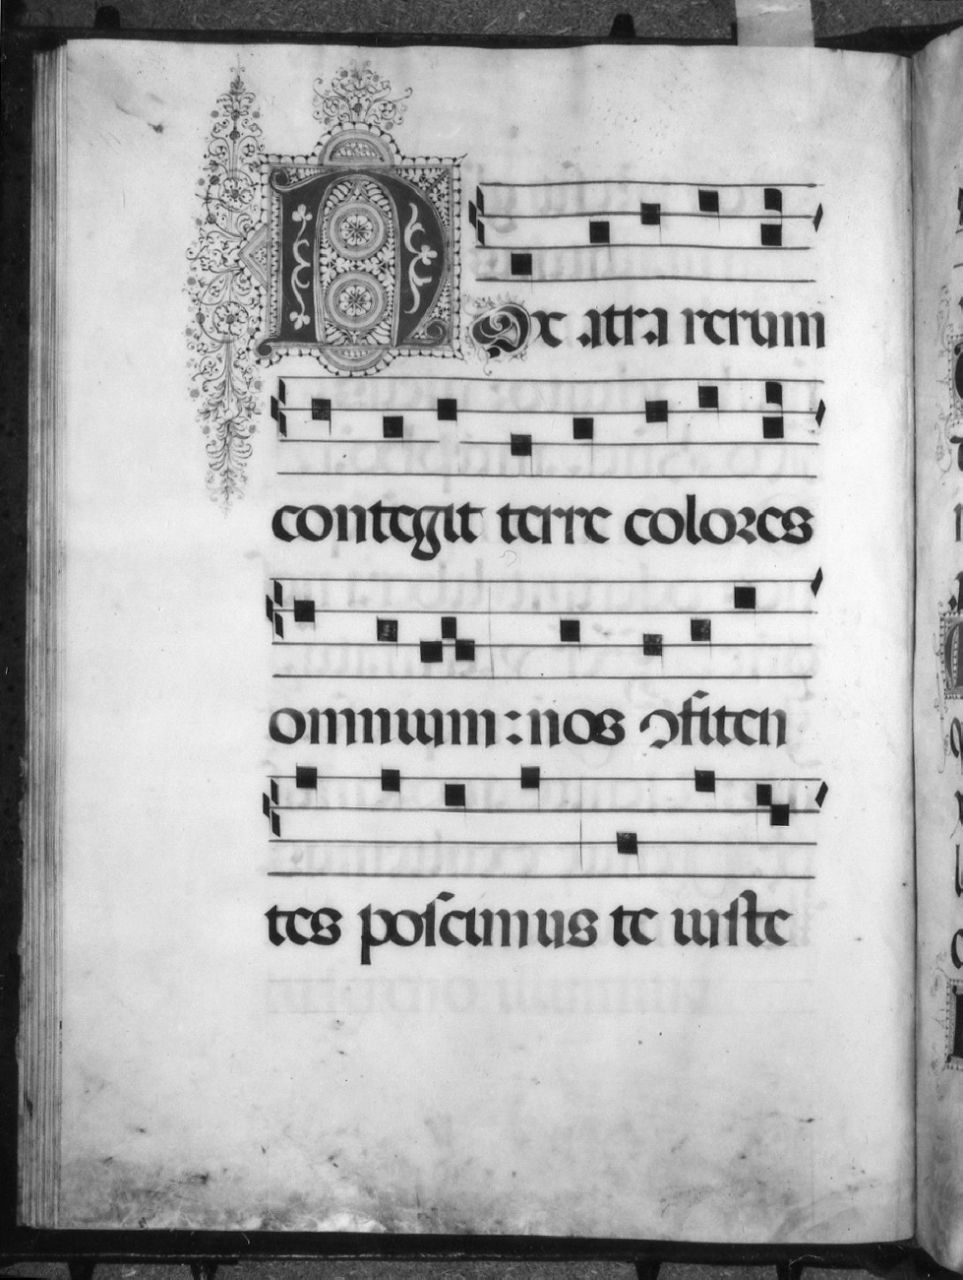 NOx atra rerum
contegit terre colores
omnium : nos ꝯfiten
tes poſcimus te iuſte